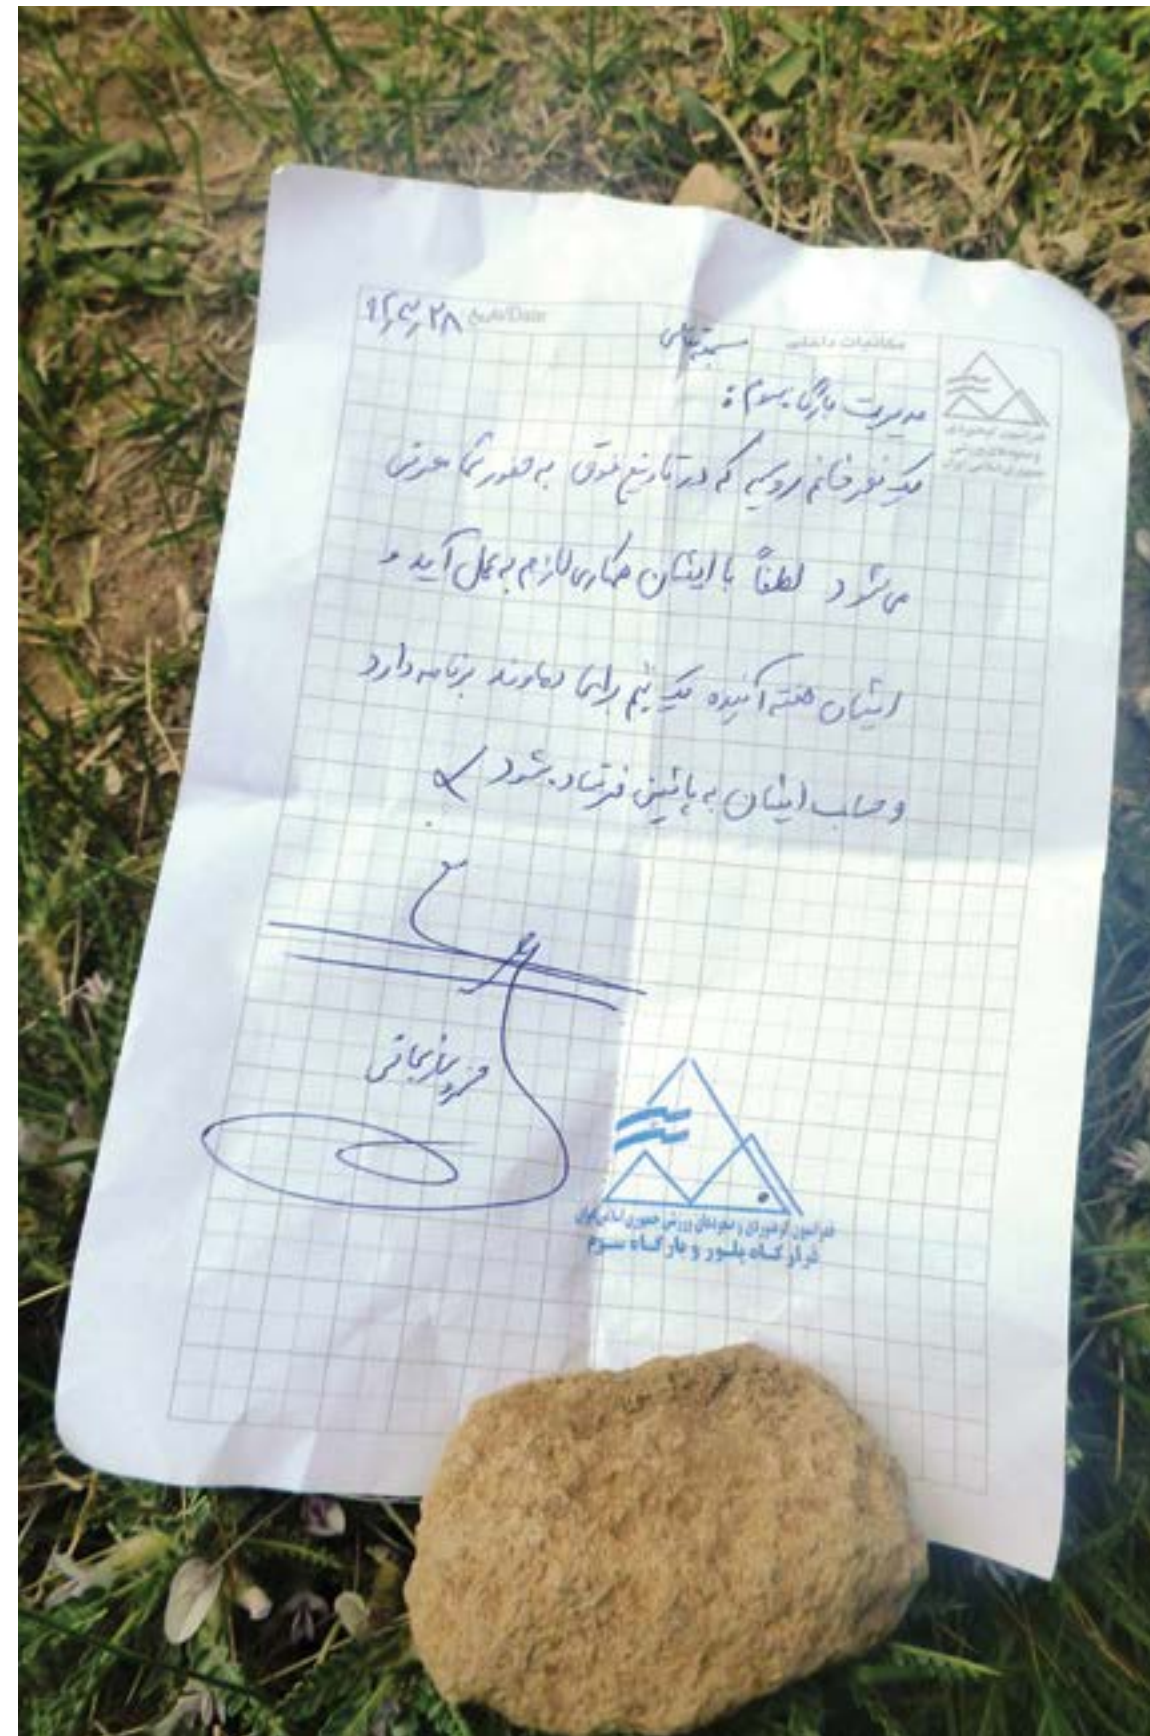 تاریخ/Date ۹۴,۳,۲۸
مکاتبات داخلی
بسمه تعالی
فدراسیون کوهنوردی
و صعودهای ورزشی
جمهوری اسلامی ایران
مدیریت بارگاه سوم :
یک نفر خانم روسیه که در تاریخ فوق به حضور شما معرفی
می شود لطفاً با ایشان همکاری لازم به عمل آید و
ایشان هفته آینده یک تیم برای دماوند برنامه دارد
و حساب ایشان به پائین فرستاده شود
فدراسیون کوهنوردی و صعودهای ورزشی جمهوری اسلامی ایران
قرارگاه پلور و بارگاه سوم